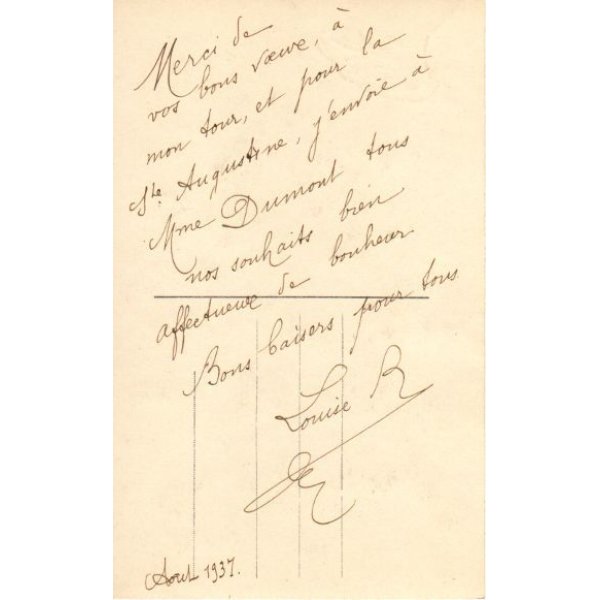 Merci de
vos bons vœux, à
mon tour, et pour la
Ste Augustine, j'envoie à
Mme Dumont tous
nos souhaits bien
affectueux de bonheur
Bons baisers pour tous
Louise R
Aout 1937.